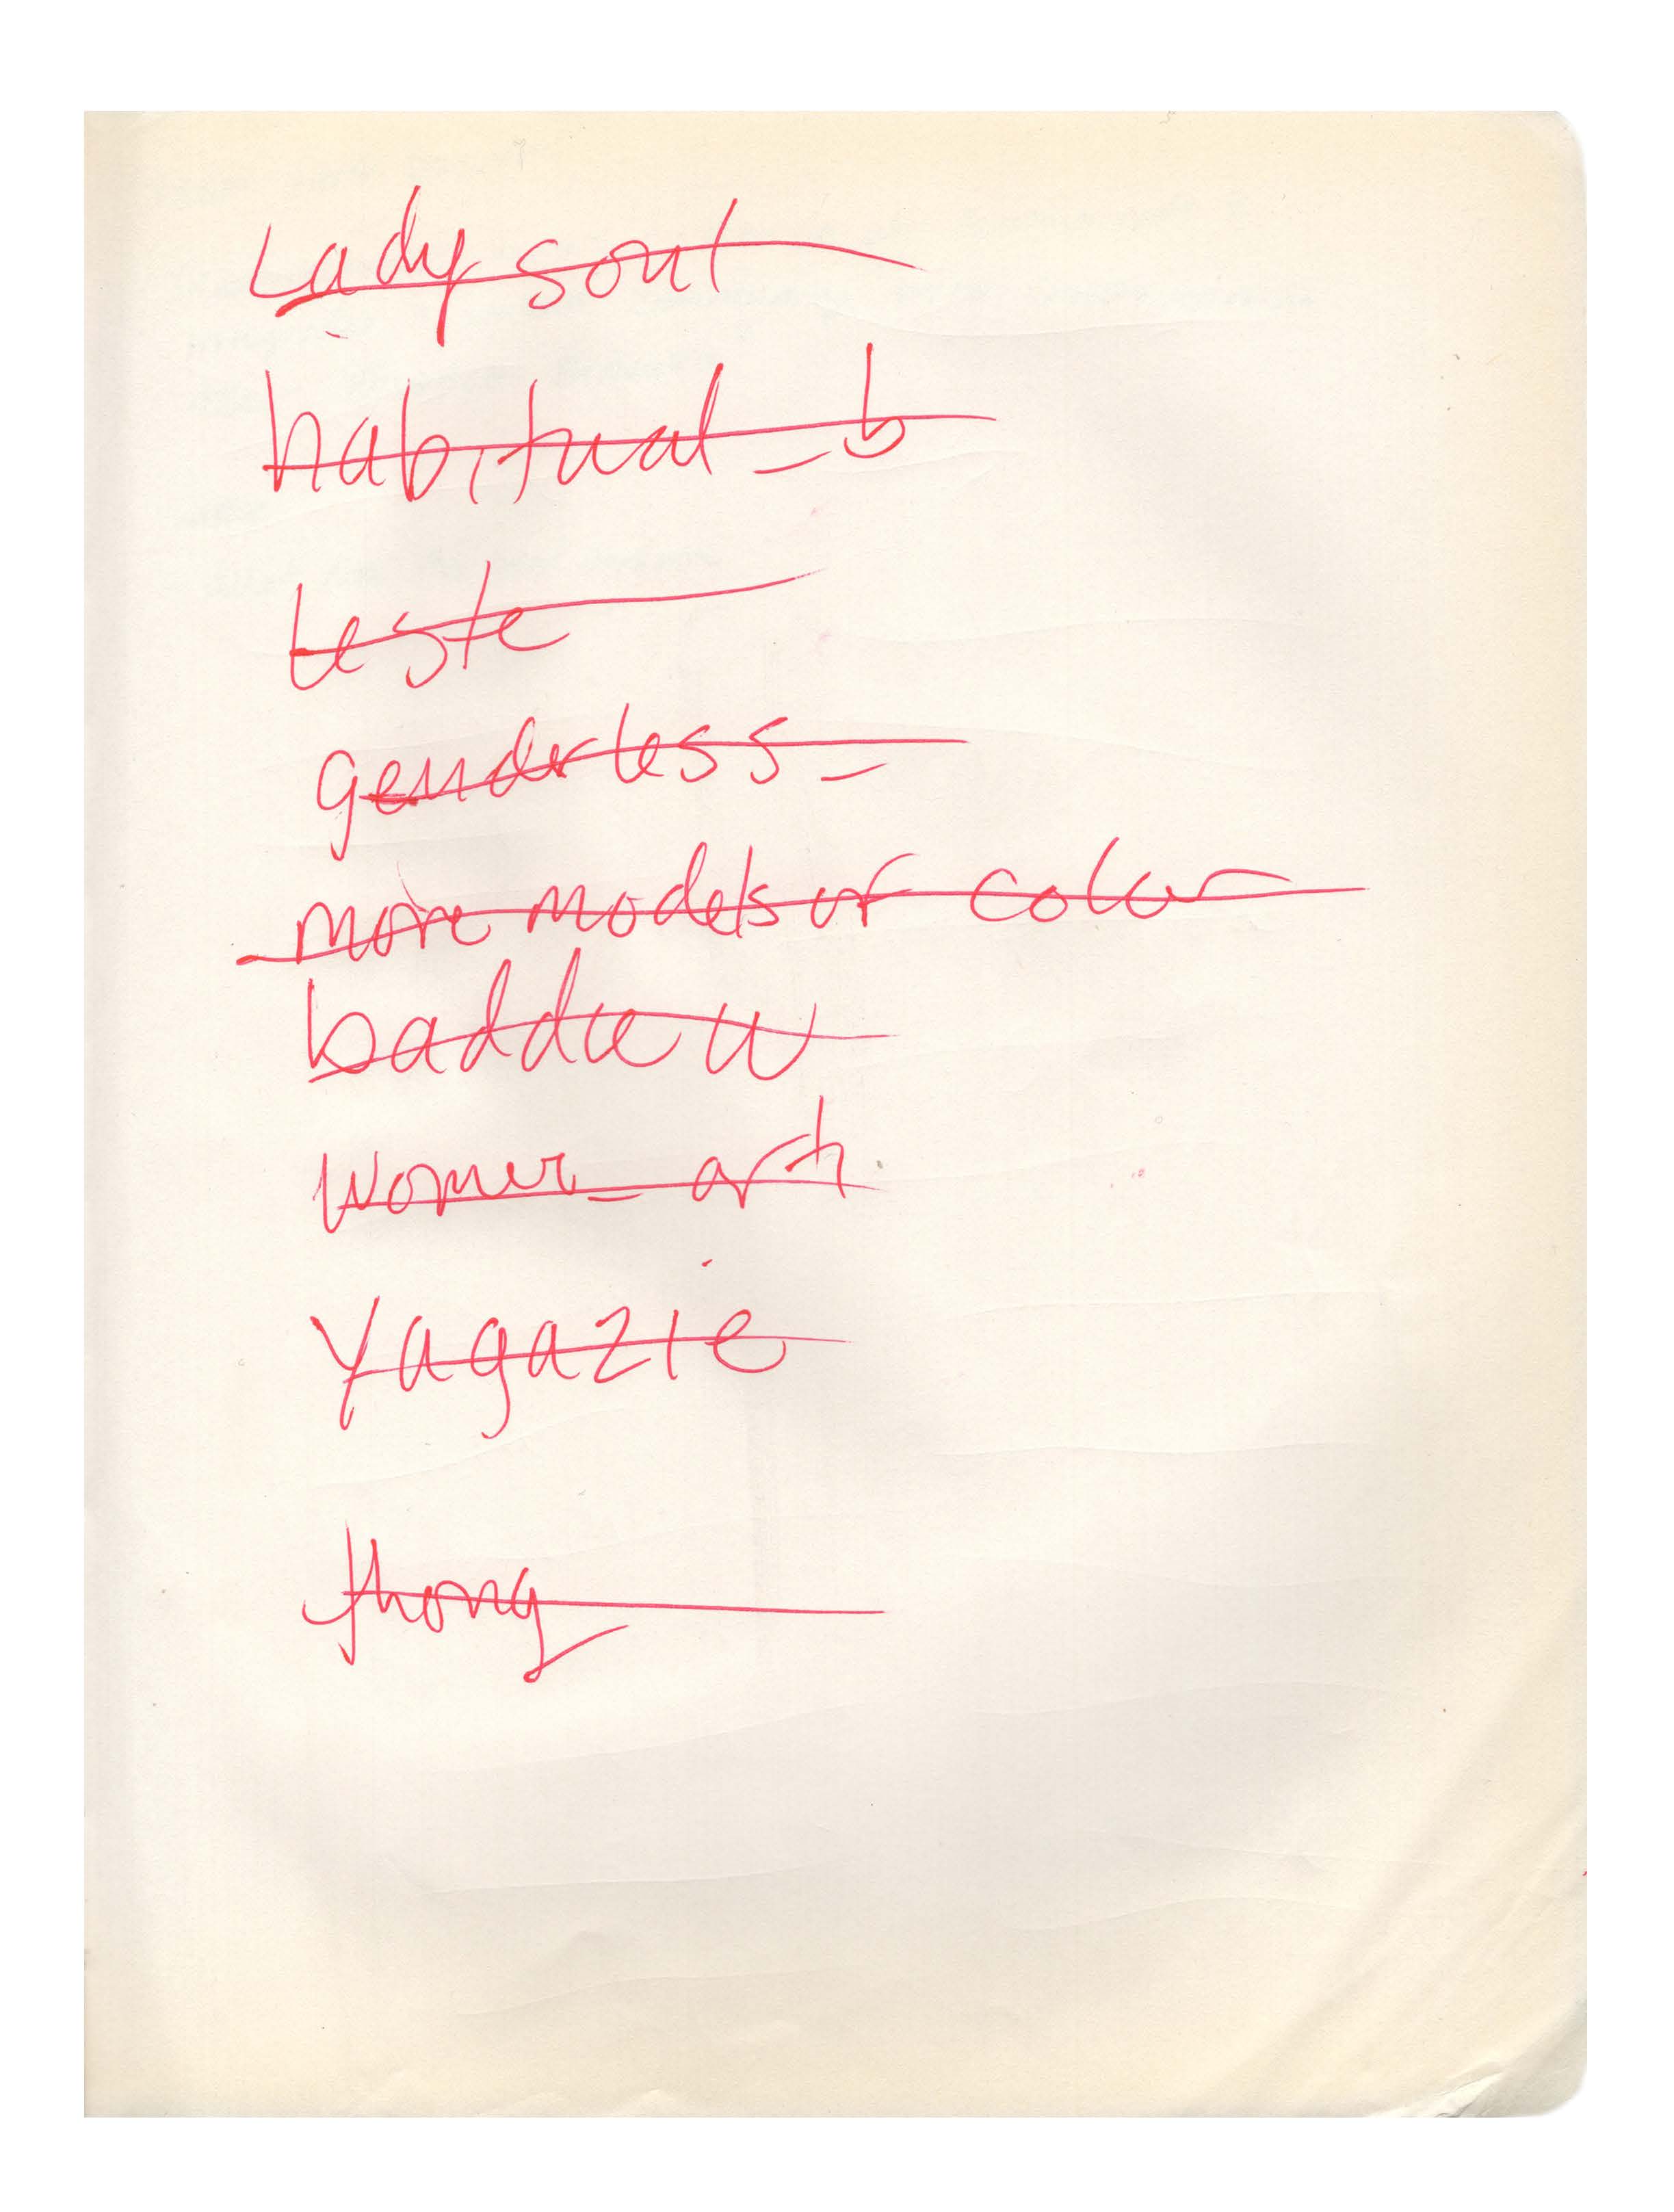 Lady soul
habitual_b
teste
genderless_
more models of color
baddie w
women_art
Yagazie
thong